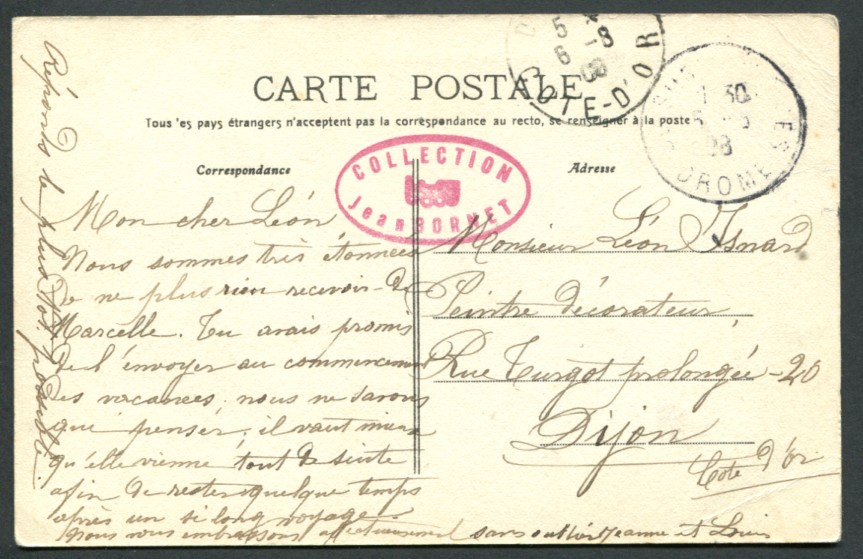 CARTE POSTALE
Tous les pays étrangers n'acceptent pas la correspondance au recto, se renseigner à la poste
Correspondance
Adresse
COLLECTION
Jean BORNET
5
6 -8
08
COTE-D'OR
30
28
DROME
Mon cher Léon
Nous sommes très étonnées
de ne plus rien recevoir de
Marcelle. Tu avais promis
de l'envoyer au commencement
des vacances. nous ne savons
que penser, il vaut mieux
qu'elle vienne tout de suite
afin de rester quelque temps
après un si long voyage
nous vous embrassons affectueusement sans oublier Jeanne et Louis
Réponds le plus tôt possible.
Monsieur Léon Isnard
Peintre décorateur
Rue Turgot prolongée - 20
Dijon
Côte d'Or